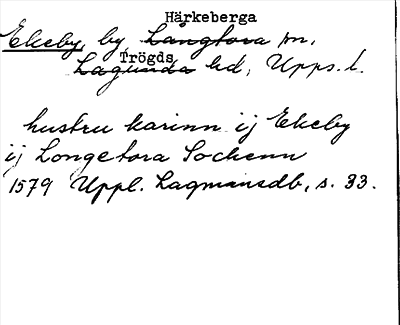 Härkeberga
Ekeby, by, Långtora sn,
Trögds
Lagunda hd, Upps. l.
hustru karinn ij Ekeby
ij Longetora Sockenn
1579 Uppl. Lagmansdb, s. 33.